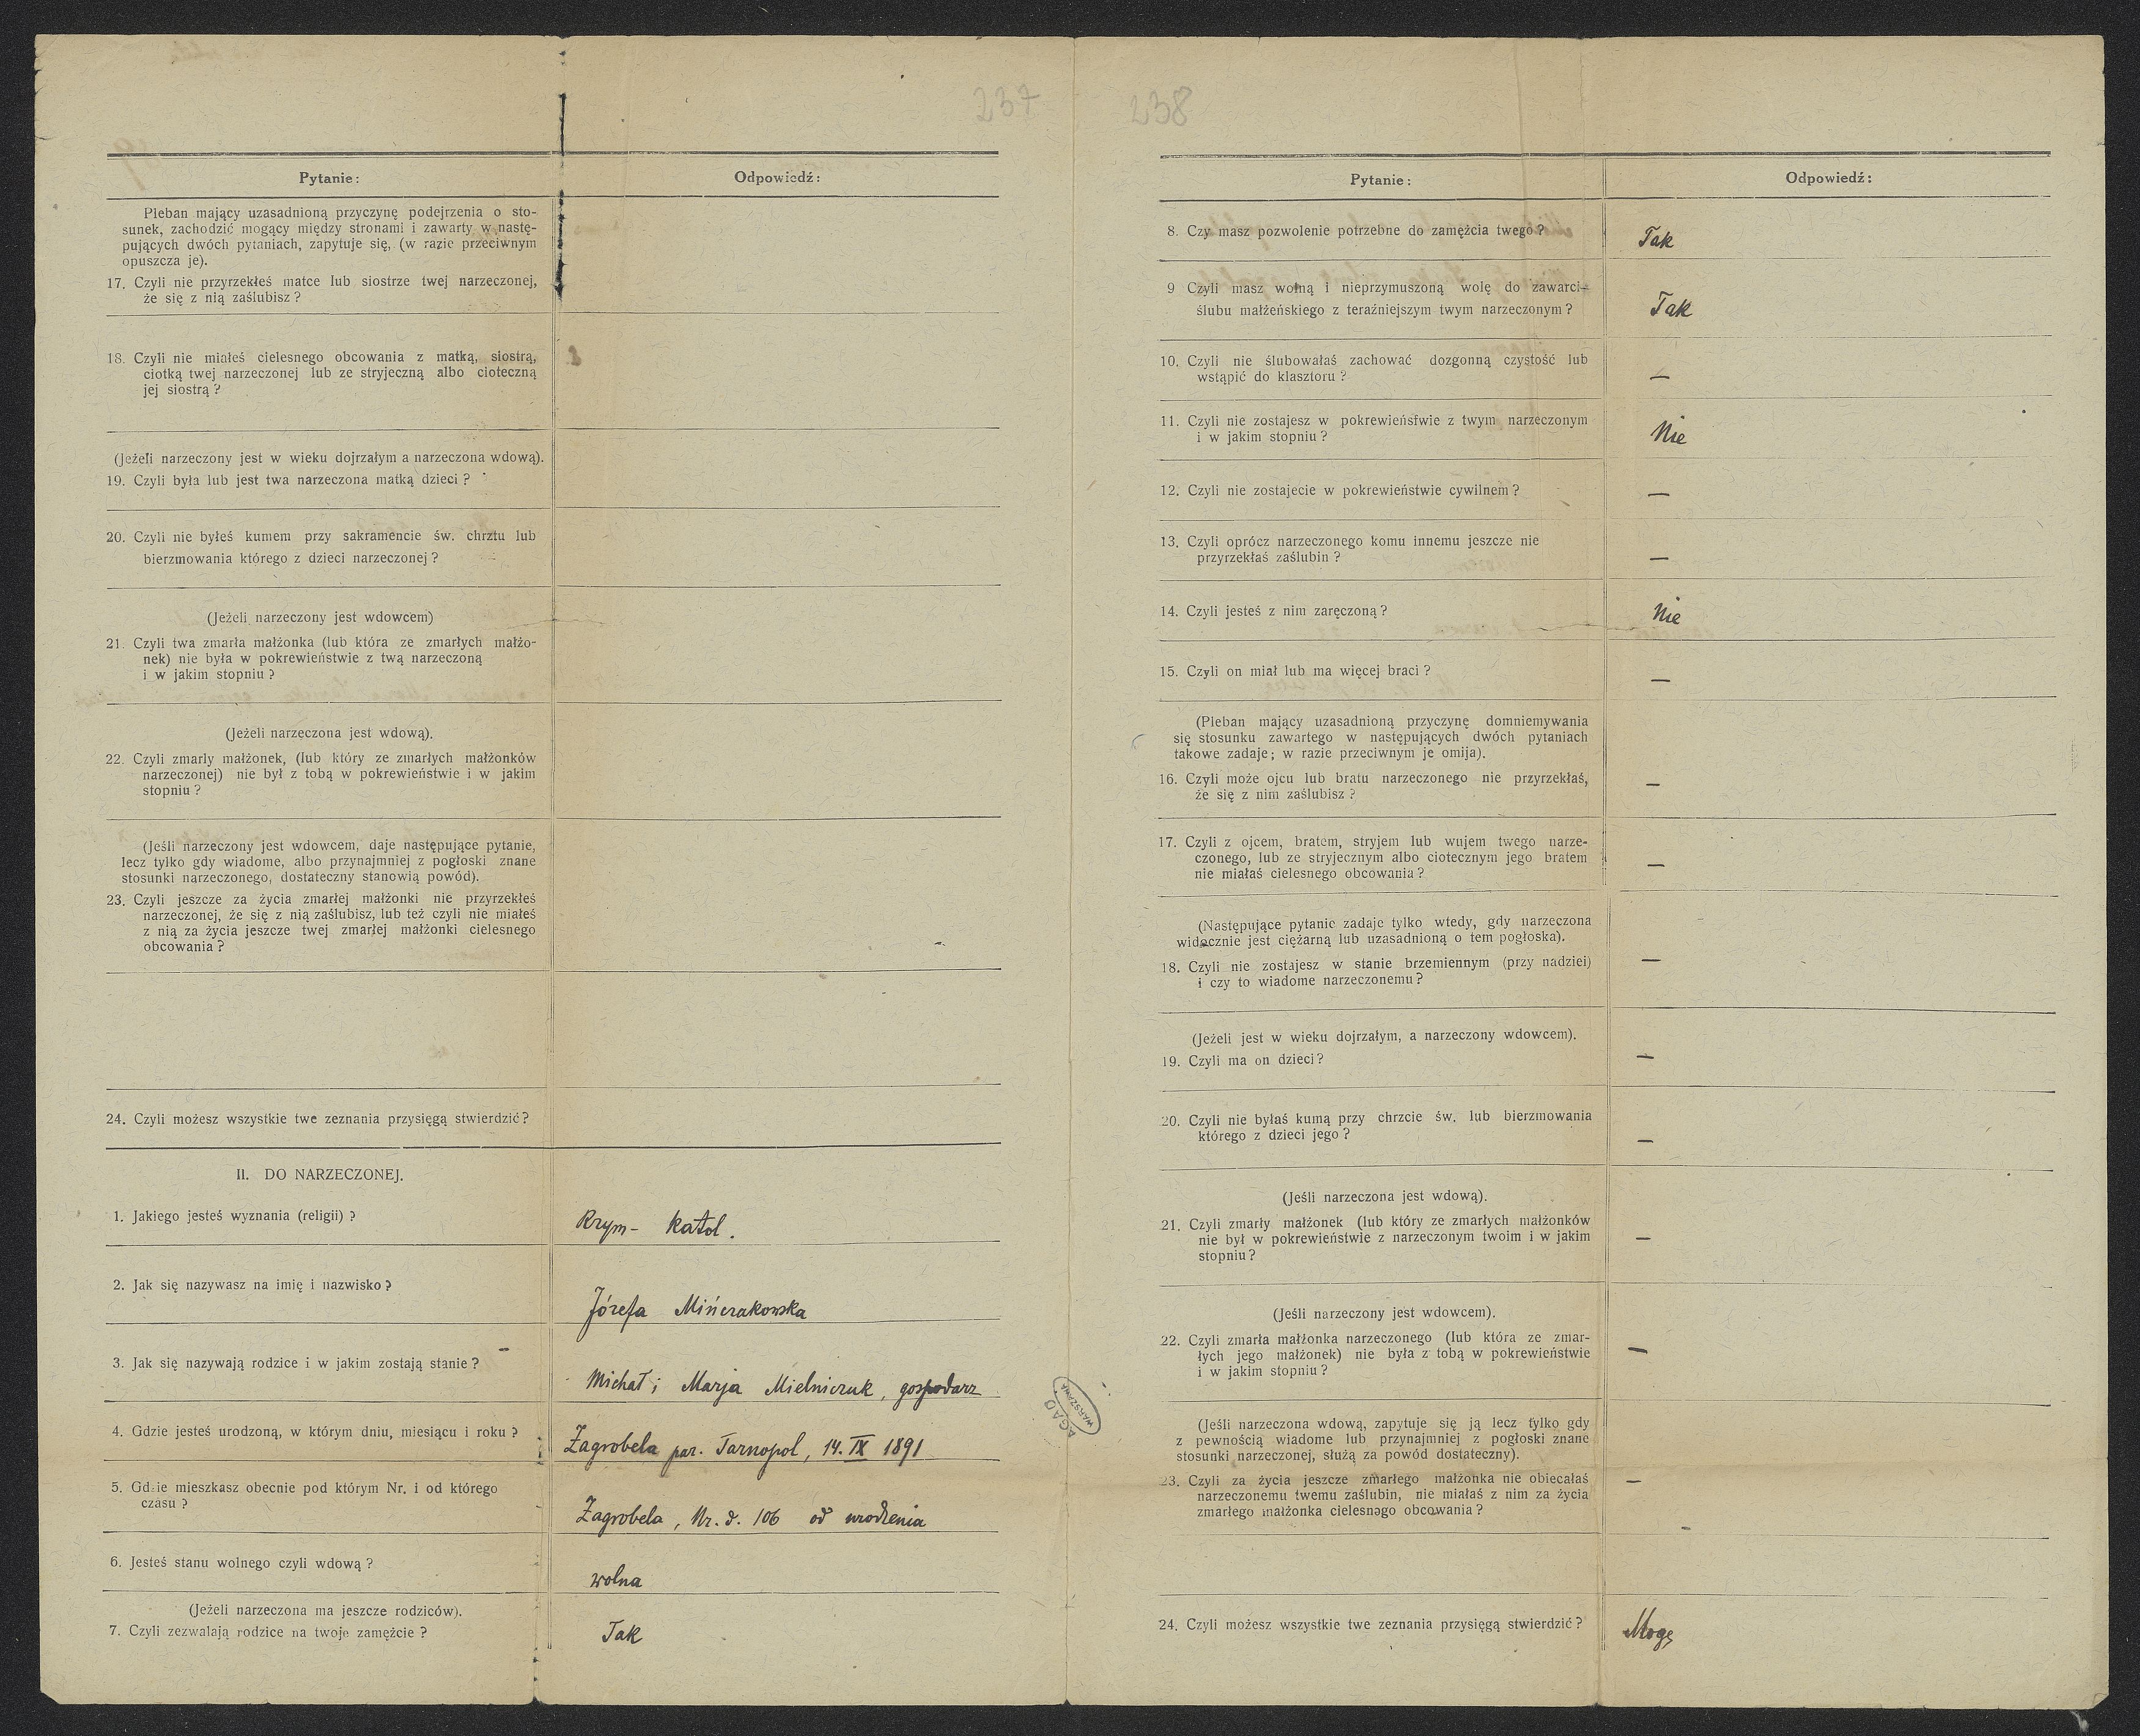 237
Pytanie:
Odpowiedź:
Pleban mający uzasadnioną przyczynę podejrzenia o sto-
sunek, zachodzić mogący między stronami i zawarty w nastę-
pujących dwóch pytaniach, zapytuje się, (w razie przeciwnym
opuszcza je).
17. Czyli nie przyrzekłeś matce lub siostrze twej narzeczonej,
że się z nią zaślubisz?
18. Czyli nie miałeś cielesnego obcowania z matką, siostrą,
ciotką twej narzeczonej lub ze stryjeczną albo cioteczną
jej siostrą?
(Jeżeli narzeczony jest w wieku dojrzałym a narzeczona wdową).
19. Czyli była lub jest twa narzeczona matką dzieci?
20. Czyli nie byłeś kumem przy sakramencie św. chrztu lub
bierzmowania którego z dzieci narzeczonej?
(Jeżeli narzeczony jest wdowcem)
21. Czyli twa zmarła małżonka (lub która ze zmarłych małżo-
nek) nie była w pokrewieństwie z twą narzeczoną
i w jakim stopniu?
(Jeżeli narzeczona jest wdową).
22. Czyli zmarly małżonek, (lub który ze zmarłych małżonków
narzeczonej) nie był z tobą w pokrewieństwie i w jakim
stopniu?
(Jeśli narzeczony jest wdowcem, daje następujące pytanie,
lecz tylko gdy wiadome, albo przynajmniej z pogłoski znane
stosunki narzeczonego, dostateczny stanowią powód).
23. Czyli jeszcze za życia zmarłej małżonki nie przyrzekłeś
narzeczonej, że się z nią zaślubisz, lub też czyli nie miałeś
z nią za życia jeszcze twej zmarłej małżonki cielesnego
obcowania?
24. Czyli możesz wszystkie twe zeznania przysięgą stwierdzić?
II. DO NARZECZONEJ.
1. Jakiego jesteś wyznania (religii)?
Rzym- katol.
2. Jak się nazywasz na imię i nazwisko?
Józefa Mińczakowska
3. Jak się nazywają rodzice i w jakim zostają stanie?
Michał i Marja Mielniczuk, gospodarz
4. Gdzie jesteś urodzoną, w którym dniu, miesiącu i roku?
Zagrobela par. Tarnopol, 14. IX 1891
5. Gdzie mieszkasz obecnie pod którym Nr. i od którego
czasu?
Zagrobela, Nr. d. 106 od urodzenia
6. Jesteś stanu wolnego czyli wdową?
wolna
(Jeżeli narzeczona ma jeszcze rodziców).
7. Czyli zezwalają rodzice na twoje zamężcie?
Tak
AGAD
WARSZAWA
238
Pytanie:
Odpowiedź:
8. Czy masz pozwolenie potrzebne do zamężcia twego?
Tak
9 Czyli masz wolną i nieprzymuszoną wolę do zawarci-
ślubu małżeńskiego z teraźniejszym twym narzeczonym?
Tak
10. Czyli nie ślubowałaś zachować dozgonną czystość lub
wstąpić do klasztoru?
—
11. Czyli nie zostajesz w pokrewieństwie z twym narzeczonym
i w jakim stopniu?
Nie
12. Czyli nie zostajecie w pokrewieństwie cywilnem?
—
13. Czyli oprócz narzeczonego komu innemu jeszcze nie
przyrzekłaś zaślubin?
—
14. Czyli jesteś z nim zaręczoną?
Nie
15. Czyli on miał lub ma więcej braci?
—
(Pleban mający uzasadnioną przyczynę domniemywania
się stosunku zawartego w następujących dwóch pytaniach
takowe zadaje; w razie przeciwnym je omija).
16. Czyli może ojcu lub bratu narzeczonego nie przyrzekłaś,
że się z nim zaślubisz?
—
17. Czyli z ojcem, bratem, stryjem lub wujem twego narze-
czonego, lub ze stryjecznym albo ciotecznym jego bratem
nie miałaś cielesnego obcowania?
—
(Następujące pytanie zadaje tylko wtedy, gdy narzeczona
widocznie jest ciężarną lub uzasadnioną o tem pogłoska).
18. Czyli nie zostajesz w stanie brzemiennym (przy nadziei)
i czy to wiadome narzeczonemu?
—
(Jeżeli jest w wieku dojrzałym, a narzeczony wdowcem).
19. Czyli ma on dzieci?
—
20. Czyli nie byłaś kumą przy chrzcie św. lub bierzmowania
którego z dzieci jego?
—
(Jeśli narzeczona jest wdową).
21. Czyli zmarły małżonek (lub który ze zmarłych małżonków
nie był w pokrewieństwie z narzeczonym twoim i w jakim
stopniu?
—
(Jeśli narzeczony jest wdowcem).
22. Czyli zmarła małżonka narzeczonego (lub która ze zmar-
łych jego małżonek) nie była z tobą w pokrewieństwie
i w jakim stopniu?
—
(Jeśli narzeczona wdową, zapytuje się ją lecz tylko gdy
z pewnością wiadome lub przynajmniej z pogłoski znane
stosunki narzeczonej, służą za powód dostateczny).
23. Czyli za życia jeszcze zmarłego małżonka nie obiecałaś
narzeczonemu twemu zaślubin, nie miałaś z nim za życia
zmarłego małżonka cielesnego obcowania?
—
24. Czyli możesz wszystkie twe zeznania przysięgą stwierdzić?
Mogę